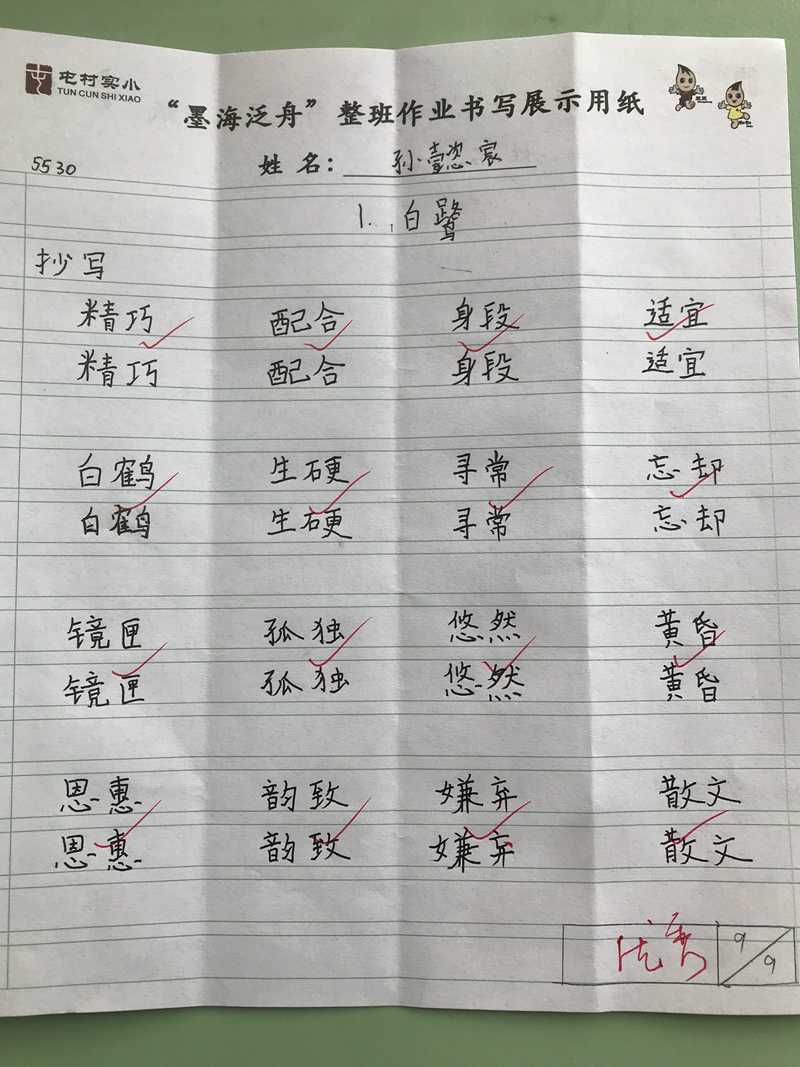 屯村实小
TUN CUN SHI XIAO
“墨海泛舟”整班作业书写展示用纸
姓名：孙懿宸
5530
1. 白鹭
抄写
精巧 配合 身段 适宜
精巧 配合 身段 适宜
白鹤 生硬 寻常 忘却
白鹤 生硬 寻常 忘却
镜匣 孤独 悠然 黄昏
镜匣 孤独 悠然 黄昏
恩惠 韵致 嫌弃 散文
恩惠 韵致 嫌弃 散文
优秀 9/9